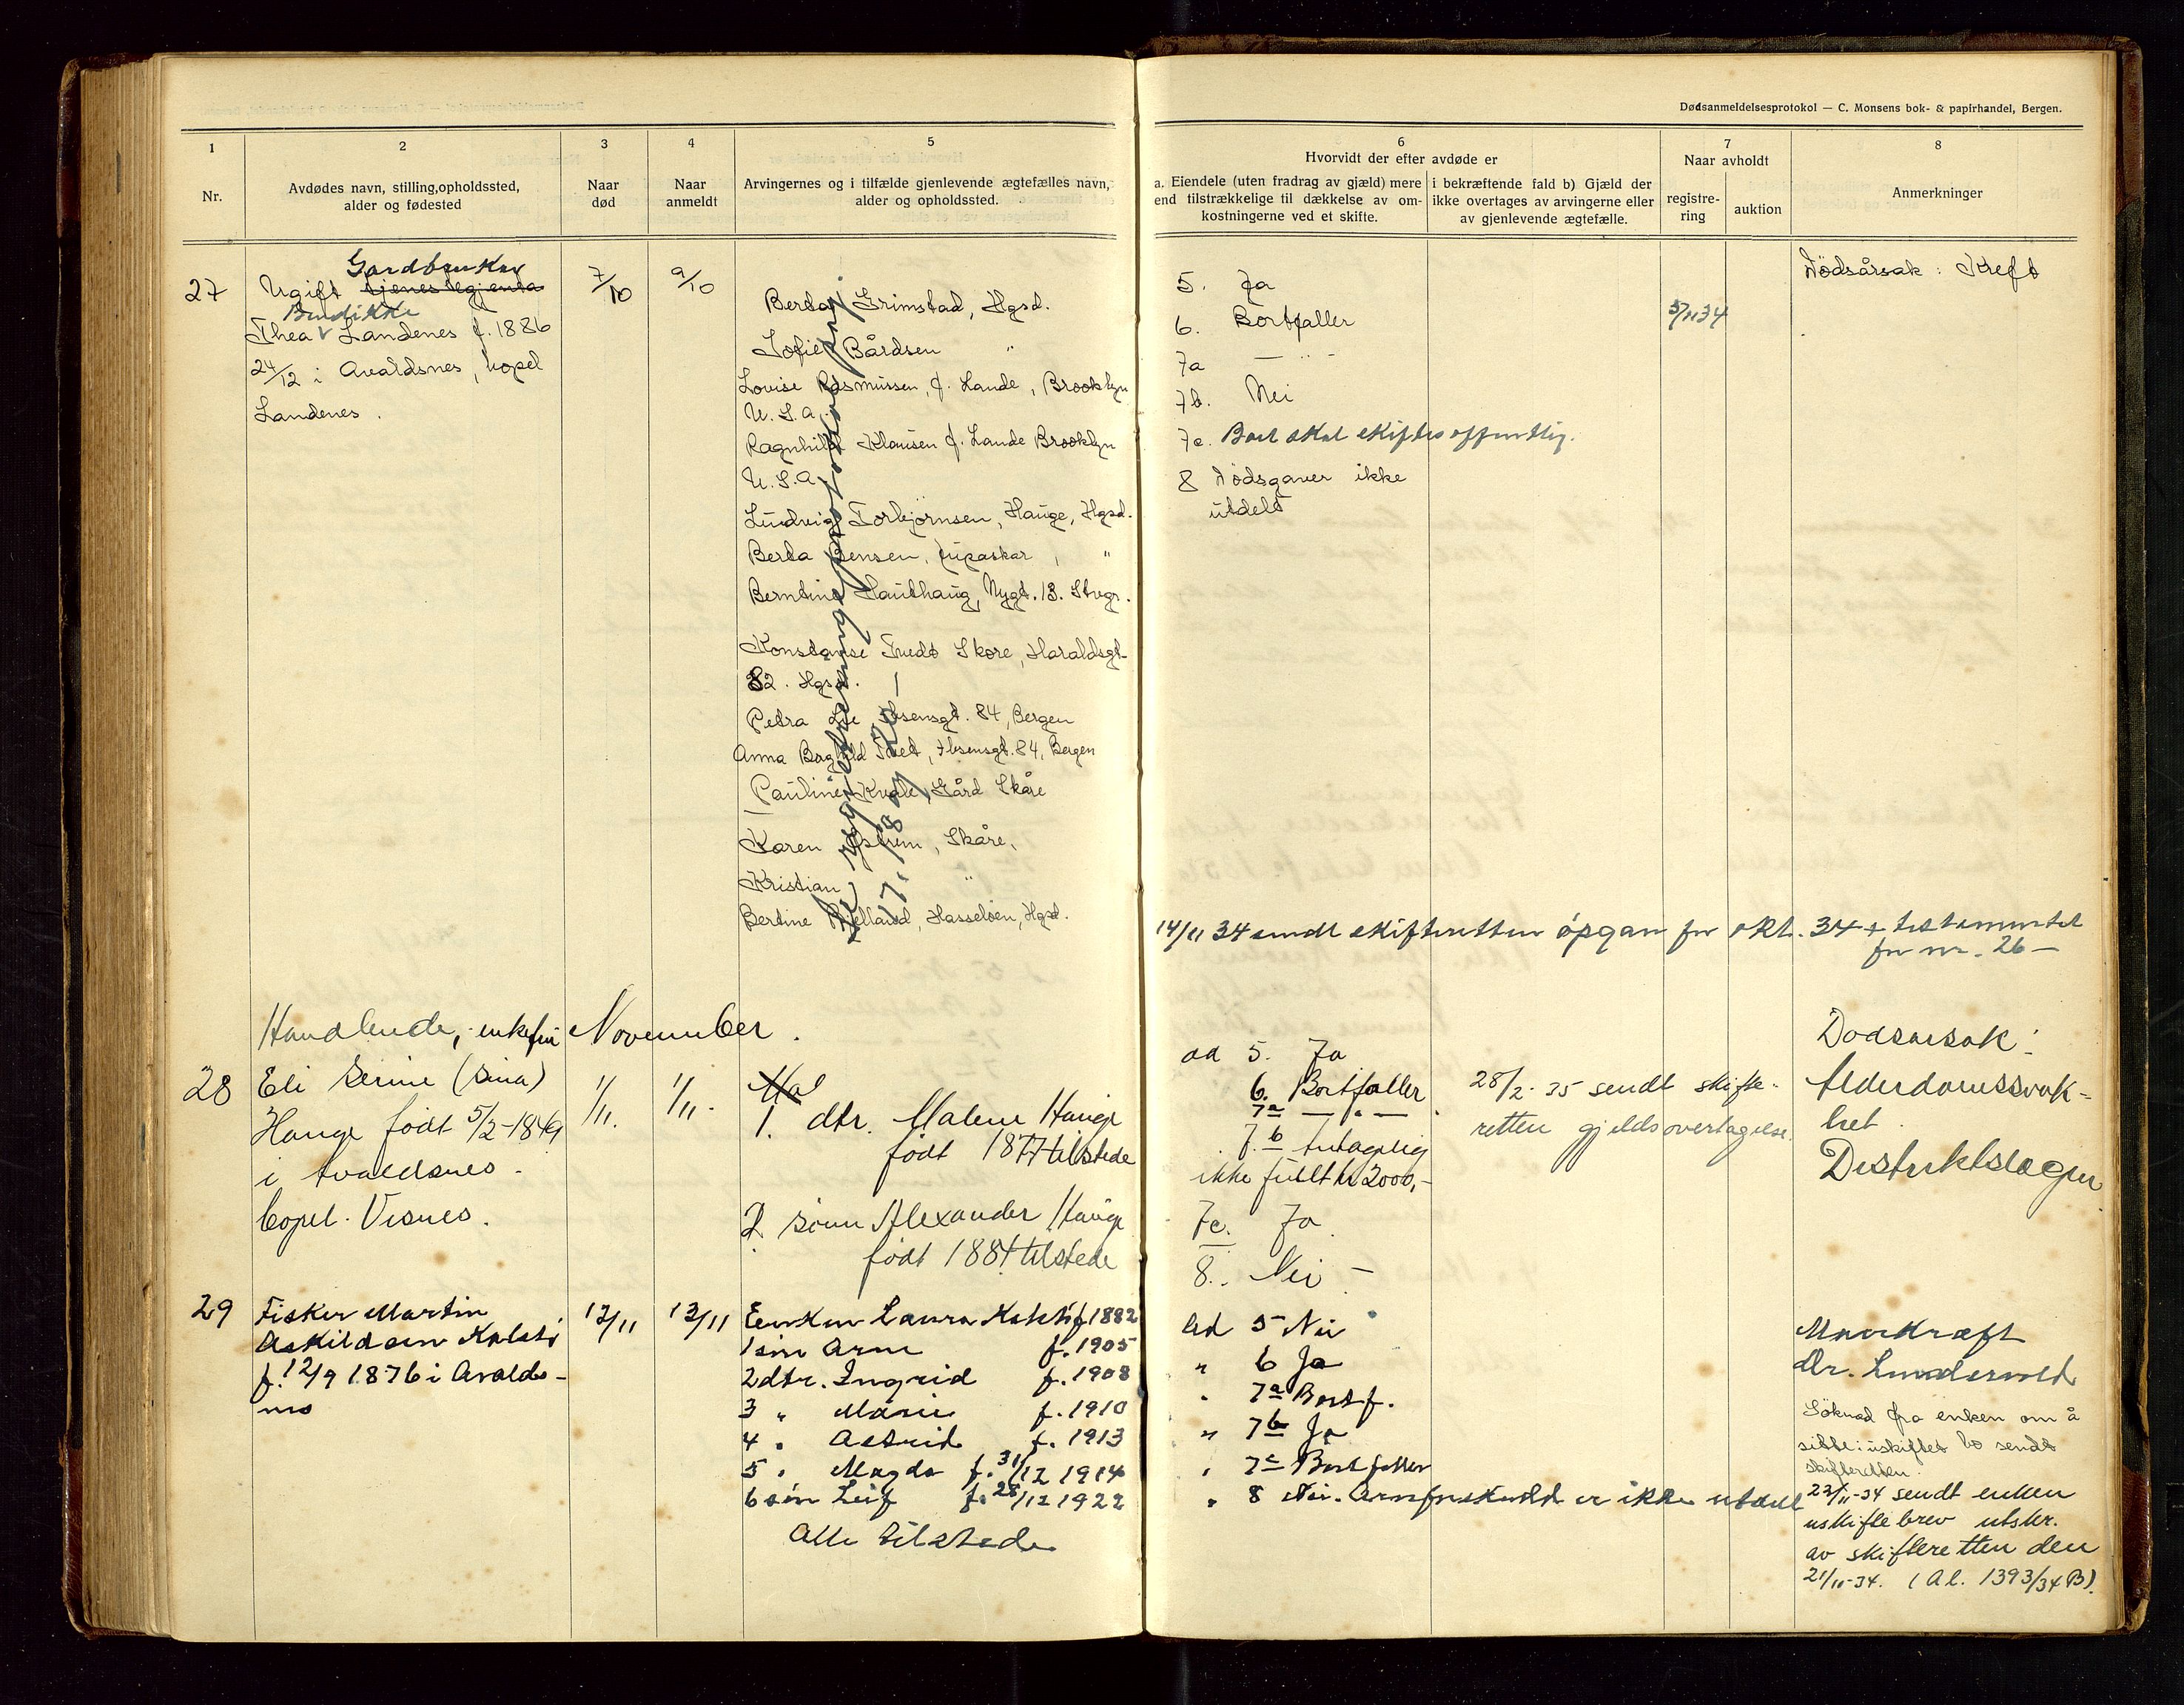 Dødsanmeldelsesprotokol — C. Monsens bok- & papirhandel, Bergen.
1
Nr.
2
Avdødes navn, stilling,opholdssted,
alder og fødested
3
Naar
død
4
Naar
anmeldt
5
Arvingernes og i tilfælde gjenlevende ægtefælles navn,
alder og opholdssted.
6
Hvorvidt der efter avdøde er
a. Eiendele (uten fradrag av gjæld) mere
end tilstrækkelige til dækkelse av om-
kostningerne ved et skifte.
i bekræftende fald b) Gjæld der
ikke overtages av arvingerne eller
av gjenlevende ægtefælle.
7
Naar avholdt
registre-
ring
auktion
8
Anmerkninger
27
Gardbruker
Ugift tjenestegjenta
Bendikke
Thea V Landenes f. 1886
24/12 i Avaldsnes, bopel
Landenes.
7/10
9/10
Berta Grimstad, Hgsd.
Sofie Bårdsen "
Lovise Rasmussen, f. Lande, Brooklyn
U. S. a.
Ragnhild Klausen f. Lande Brooklyn
U. S. a.
Ludvig Torbjørnsen, Hauge, Hgsd.
Berta Bensen, "
Berntine Hauthaug, Nygt. 13. Stvgr.
Konstanse Tvedt Skore, Haraldsgt.
82. Hgsd.
Petra Lie Ibsensgt. 84, Bergen
Anna Borghild Tvet, Ibsensgt. 84, Bergen
Pauline Kvale, Gård Skåre
Karen Østrem, Skåre,
Kristian "
Bertine Bjelland, Hasseløen, Hgsd.
5. Ja
6. Bortfaller
7a — " —
7b. Nei
7c. Boet skal skiftes offentlig.
8 Dødsgaver ikke
utdelt
5/11 34
Dødsårsak: Kreft
14/11 34 sendt skifteretten opgav for okt. 34 + testamentet
for nr. 26 —
November.
28
Handlende, enkefru
Eli Serine (Sina)
Hauge født 5/2-1849
i Avaldsnes.
bopel. Visnes.
1/11.
1/11.
Mal
1. dtr. Malene Hauge
født 1877 tilstede
2. sønn Alexander Hauge
født 1884 tilstede
ad 5. Ja
6. Bortfaller
7a — " —
7.b Antagelig
ikke fullt kr 2000,-
7c. Ja
8. Nei —
28/2-35 sendt skifte-
retten gjeldsovertagelse.
Dødsarsak:
Alderdomssvak-
het.
Distriktslægen
29
Fisker Martin
Askildsen Kalstø
f. 12/9 1876 i Avalds-
nes
12/11
13/11
Enken Laura Kalstø f 1882
1 søn Arne f. 1905
2 dtr. Ingrid f. 1908
3 " Marie f. 1910
4 " Astrid f. 1913
5 " Magda f. 31/12 1914
6 søn Leif f. 28/12 1922
Alle tilstede
Ad 5 Nei
" 6 Ja
" 7a Bortf.
" 7b Ja
" 7c Bortfaller
" 8 Nei. Arveforskudd er ikke utdelt
Mavekræft
Dr. Lundesvold
Søknad fra enken om å
sitte i uskiftet bo sendt
skifteretten.
23/11-34 sendt enken
uskiftebrev utskr.
av skifteretten den
21/11-34. (Al. 1393/34 B).